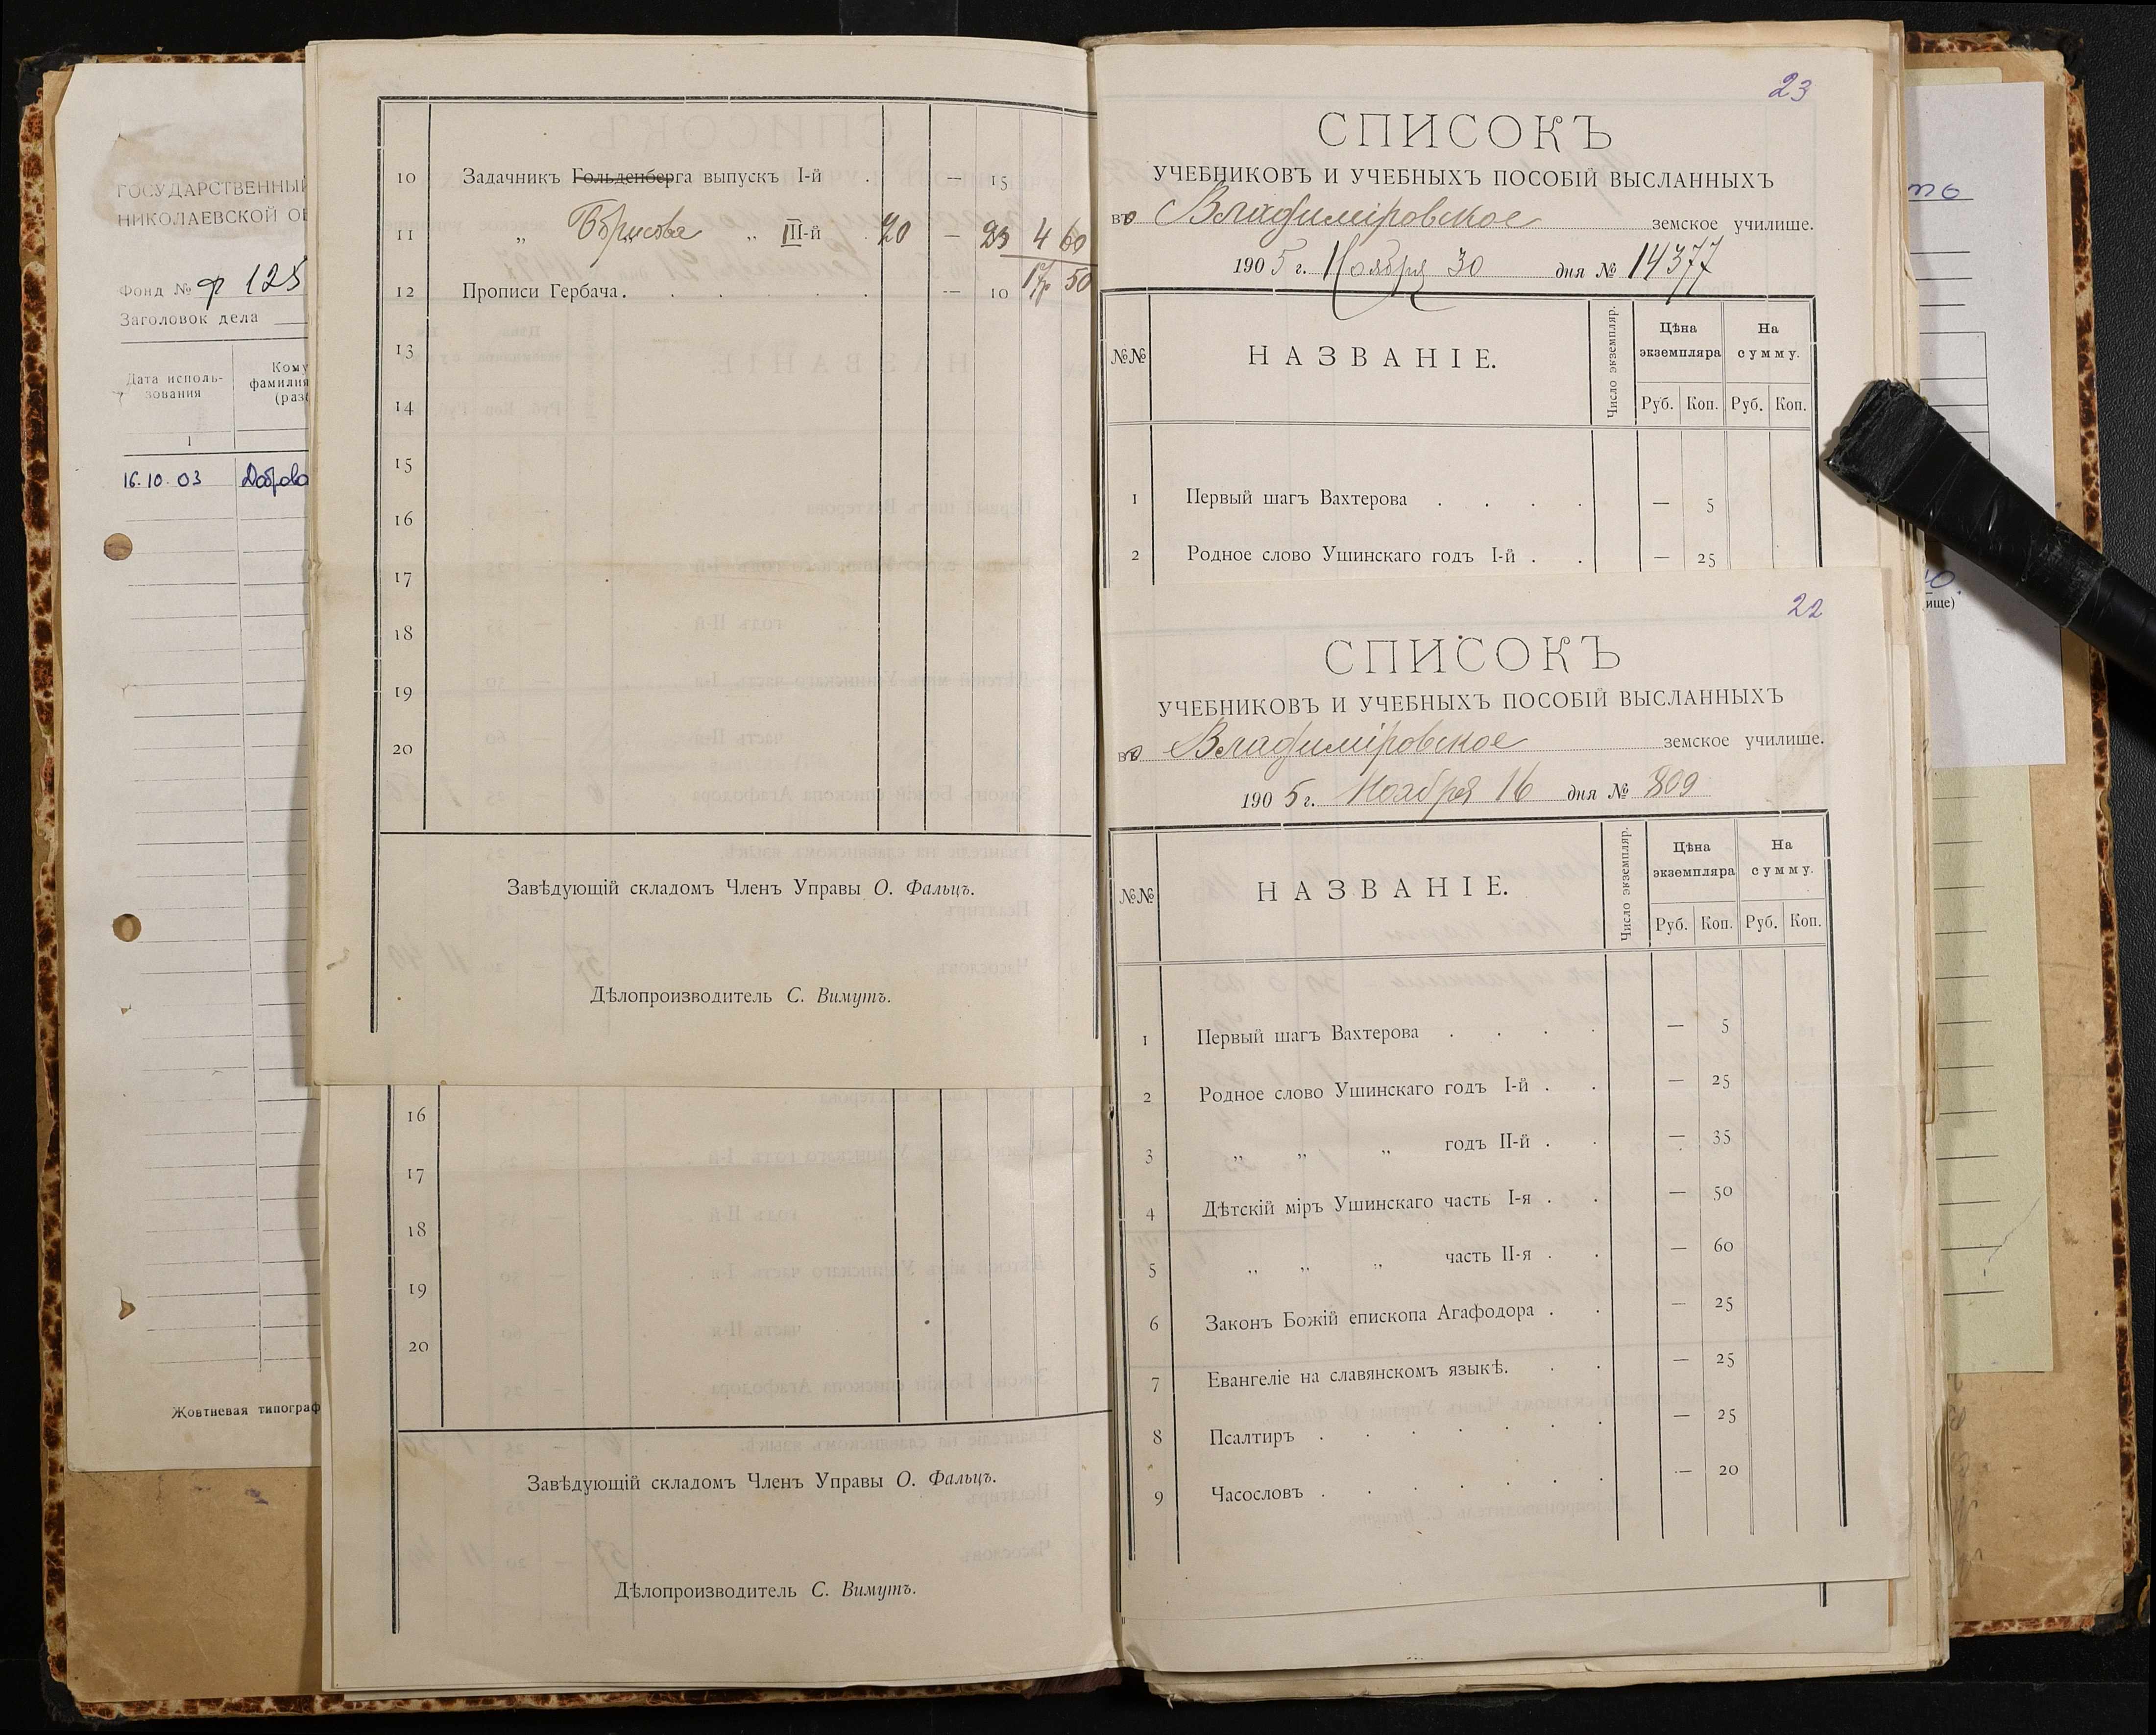 ГОСУДАРСТВЕННЫЙ
НИКОЛАЕВСКОЙ ОБ
Фонд № ф 125
Заголовок дела
Дата исполь-
зования
Кому
фамилия
1
16.10.03
Жовтневая типограф
10 Задачникъ Гольденберга выпускъ I-й . — 15
11 „ „ „ III-й . 20 — 23 4 60
17р 50
12 Прописи Гербача. . . . . . — 10
13
14
15
16
17
18
19
20
Завѣдующій складомъ Членъ Управы О. Фальцъ.
Дѣлопроизводитель С. Вимутъ.
16
17
18
19
20
Завѣдующій складомъ Членъ Управы О. Фальцъ.
Дѣлопроизводитель С. Вимутъ.
23
СПИСОКЪ
УЧЕБНИКОВЪ И УЧЕБНЫХЪ ПОСОБІЙ ВЫСЛАННЫХЪ
во Владиміровское земское училище.
1905 г. Ноября 30 дня № 14377
№№
НАЗВАНІЕ.
Число экземпляр.
Цѣна экземпляра
На сумму.
Руб. Коп. Руб. Коп.
1 Первый шагъ Вахтерова . . . . — 5
2 Родное слово Ушинскаго годъ I-й . . — 25
22
СПИСОКЪ
УЧЕБНИКОВЪ И УЧЕБНЫХЪ ПОСОБІЙ ВЫСЛАННЫХЪ
во Владиміровское земское училище.
1905 г. Ноября 16 дня № 809
№№
НАЗВАНІЕ.
Число экземпляр.
Цѣна экземпляра
На сумму.
Руб. Коп. Руб. Коп.
1 Первый шагъ Вахтерова . . . . — 5
2 Родное слово Ушинскаго годъ I-й . . — 25
3 „ „ „ годъ II-й . . — 35
4 Дѣтскій міръ Ушинскаго часть I-я . . — 50
5 „ „ „ часть II-я . . — 60
6 Законъ Божій епископа Агафодора . . — 25
7 Евангеліе на славянскомъ языкѣ. . . — 25
8 Псалтиръ . . . . . . . — 25
9 Часословъ . . . . . . . — 20
ище)